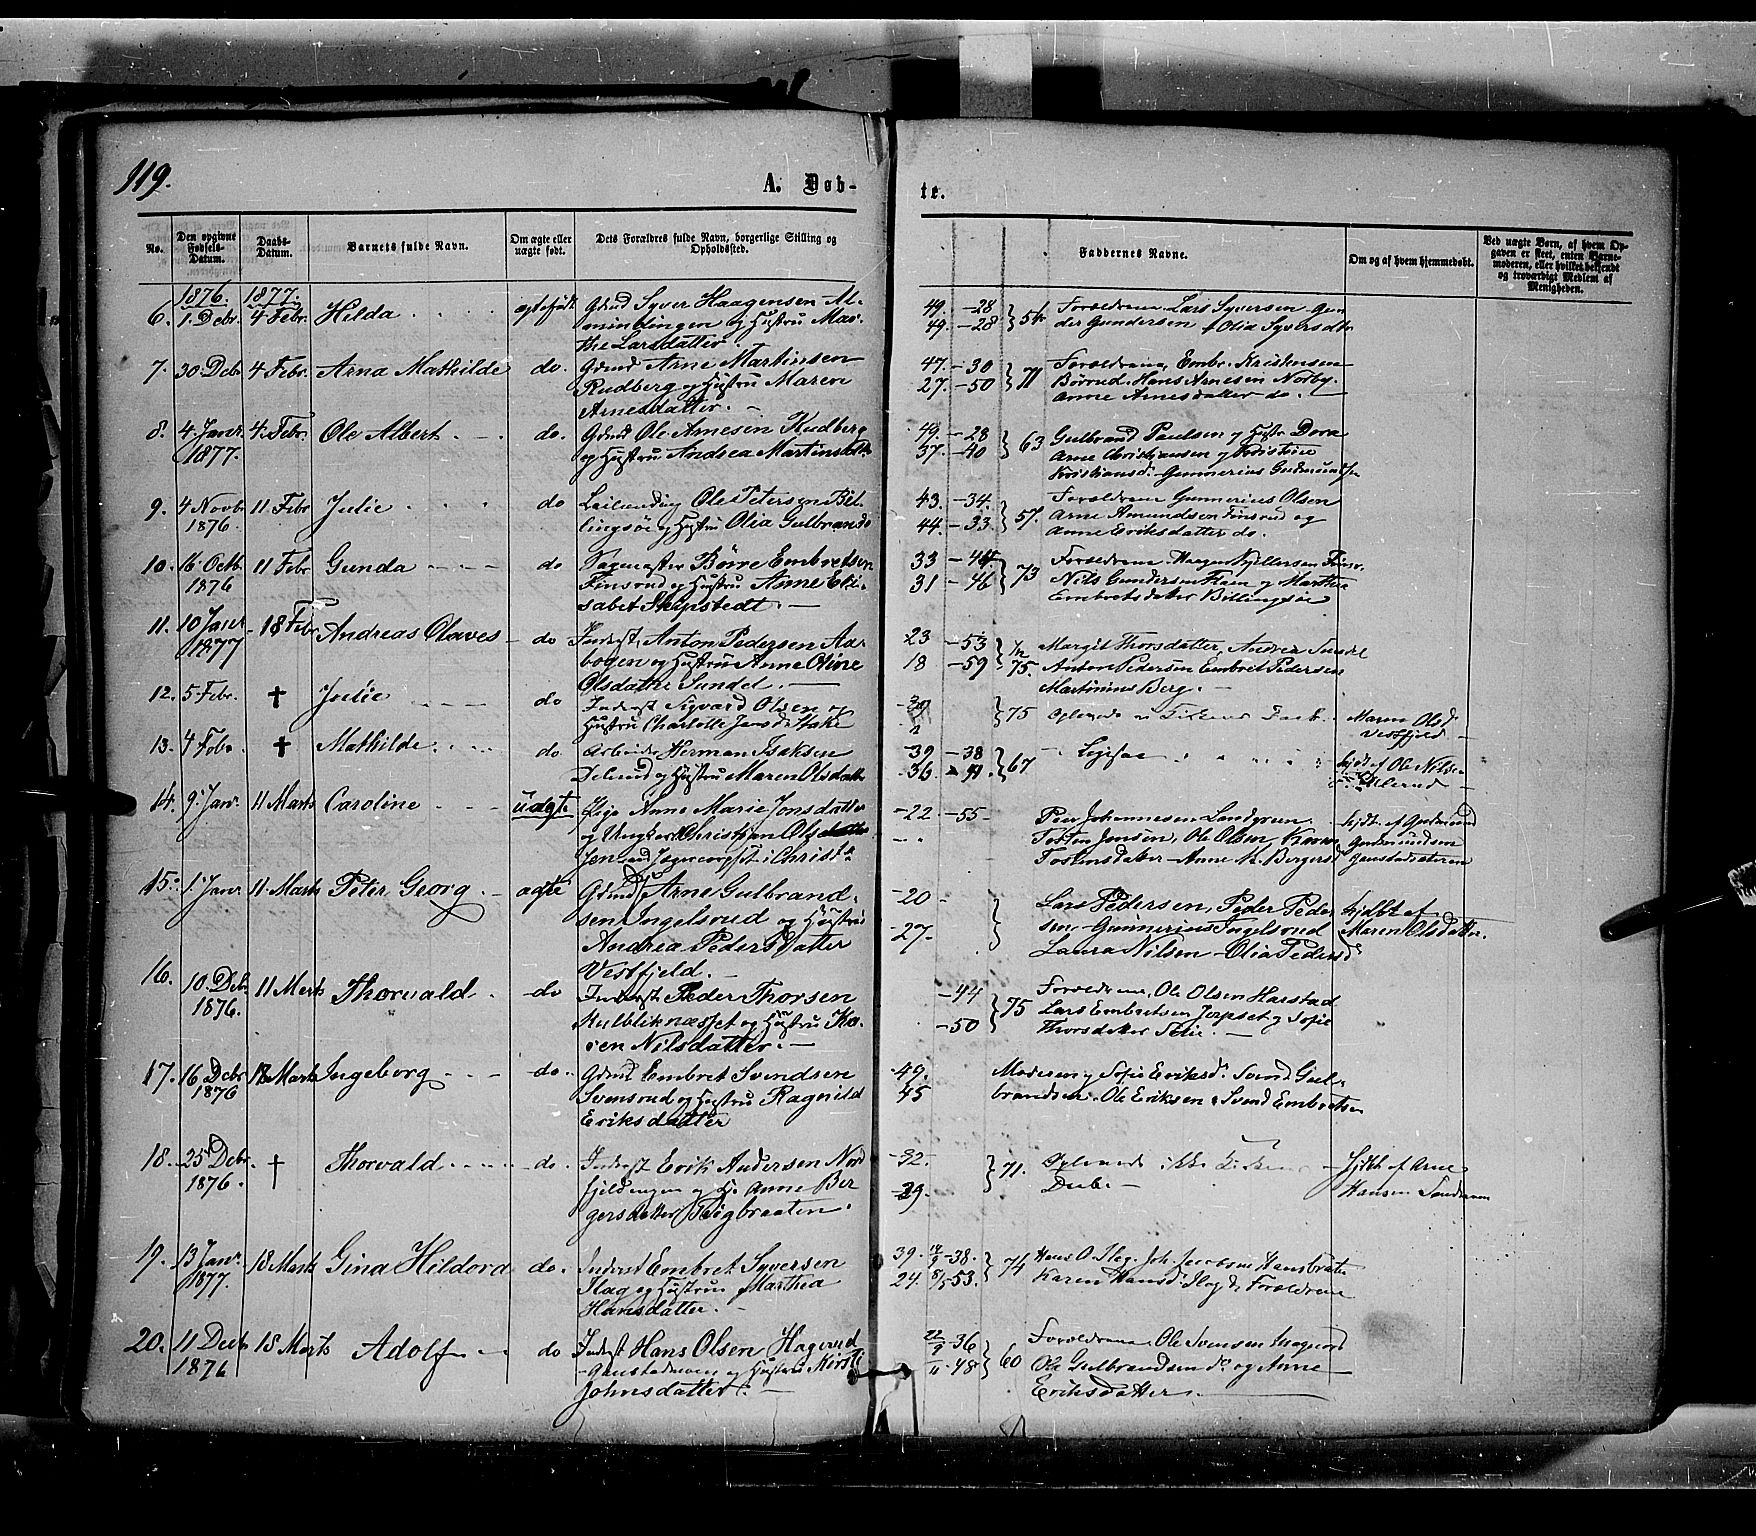 119.
A. Døb-
te.
No.
Den opgivne Fødsels-Datum.
Daabs-Datum.
Barnets fulde Navn.
Om ægte eller uægte født.
Dets Forældres fulde Navn, borgerlige Stilling og Opholdssted.
Faddernes Navne.
Om og af hvem hjemmedøbt.
Ved uægte Børn, af hvem Opgaven er skeet, enten Barnemoderen, eller hvilket betjent og troværdigt Medlem af Menigheden.
1876. 1877.
6. 1. Debr. 4 Febr. Hilda ægtefødt Gdmd Syver Haagensen Al-
mindingen og Hustru Mar-
the Larsdatter.
49. -28
49. -28 } 54 Forældrene Lars Syversen Gun-
der Gundersen Olia Syversdtr
7. 30 Debr 4 Febr. Arna Mathilde do. Gdmd Arne Martinsen
Rudberg og Hustru Maren
Arnesdatter. -
47. -30
27. -50 } 71 Forældrene, Embr. Kristensen
Børrud. Hans Arnesen Norby.
Anne Arnesdatter do.
8. 4. Janr. 1877. 4. Febr. Ole Albert do. Gdmd Ole Arnesen Rudberg
og Hustru Andrea Martinsdtr
49. -28
37. -40 } 63 Gulbrand Paulsen og Hustr Dora
Arne Christiansen og Kristine
Kristiansd. Gunnerius Gudmunds.
9. 4 Novbr 1876. 11 Febr Julie do Leilending Ole Petersen Bil-
lingsøe og Hustru Olia Gulbrands
43. -34.
44. -33. } 57. Forældrene Gunnerius Olsen
Arne Amundsen Finsrud og
Anne Eriksdatter do.
10. 16 Octb. 1876 11 Febr Gunda do Sagmester Børre Embretsen
Finsrud og Hustru Anne Eli-
sabet Skipstedt. -
33 -44
31. -46 } 73 Forældrene,
Nils Gundersen og Marthe
Embretsdatter Billingsøe
11. 10 Janr 1877 18 Febr Andreas Olaves do Inderst, Anton Pedersen Aa-
bogen og Hustru Anne Oline
Olsdatter Sundel. -
23 -53
18 -59 } 75. Margit Thorsdatter, Andrea Sundel
Anton Pedersen Embret Pedersen
Martinius Berg. -
12. 5 Febr. † Julie do Inderst Sigvard Olsen og
Hustru Charlotte Jensd.
-39 } 75 Maren Olsd.
Vestfjeld -
13. 4 Febr. † Mathilde do Arbeider Herman Isaksen
og Hustru Maren Olsdatter
-39 -38
-36 } 67 Ligesaa hjdt af Ole Nilsen
14. 9. Janr. 11 Marts Caroline uægte Pige Anne Marie Jonsdatter
og Ungkarl Christian Ols
Jægercorpset i Christ
-22 -55. Peer Johannesen
Jensen, Ole Olsen, Karen
Anne K. Bergers
hjdt. af Gudmund
Gudmundsen
15. 1. Janr 11. Marts Peter Georg ægte Gdmd Arne Gulbrand-
sen Ingelsrud og Hustru
Andrea Pedersdatter
Vestfjeld. -
-20
-27. } Lars Pedersen, Peder Peder
sen, Gunnerius Ingelsrud
Laura Nilsen - Olia Pedersd
hjdbt af
Maren Olsdatter.
16. 10. Debr. 1876. 11 Marts Thorvald do Inderst Peder Thorsen
Kulbliknæsset og Hustru Ka-
ren Nilsdatter. -
-44
-50 } 75 Forældrene, Ole Olsen Harstad
Lars Embretsen og Sofie
Thorsdatter
17. 16 Debr 1876 18 Marts Ingeborg do. Gdmd Embret Svendsen
Svensrud og Hustru Ragnild
Eriksdatter
49.
45 Moderen og Sofie Eriksd. Svend Gul-
brandsen. Ole Eriksen. Svend Embretsen
18. 25 Debr. 1876. † Thorvald do. Inderst Erik Andersen Nord
fjeldengen og H. Anne Ber
gersdatter
-32.
-29. } 71. ikke
Daab. -
hjdbt af Arne
Hansen
19. 13 Janr 1877. 18 Marts Gina Hildora do. Inderst Embret Syversen
Slag og Hustru Marthea
Hansdatter. -
39. 14/9 -38.
24. 8/5 -53. } 74 Hans O. Slag. Joh. Jacobsen Hansbraate
Karen Hansd. Slag d, Forældrene
20. 11 Decb 1876 18 Marts Adolf do Inderst Hans Olsen Hagerud
og Hustru Kirsti
Johnsdatter. -
22/9 -36
11 -48 } 60 Forældrene, Ole Svensen
Ole Gulbrandsen do og Anne
Eriksdatter.